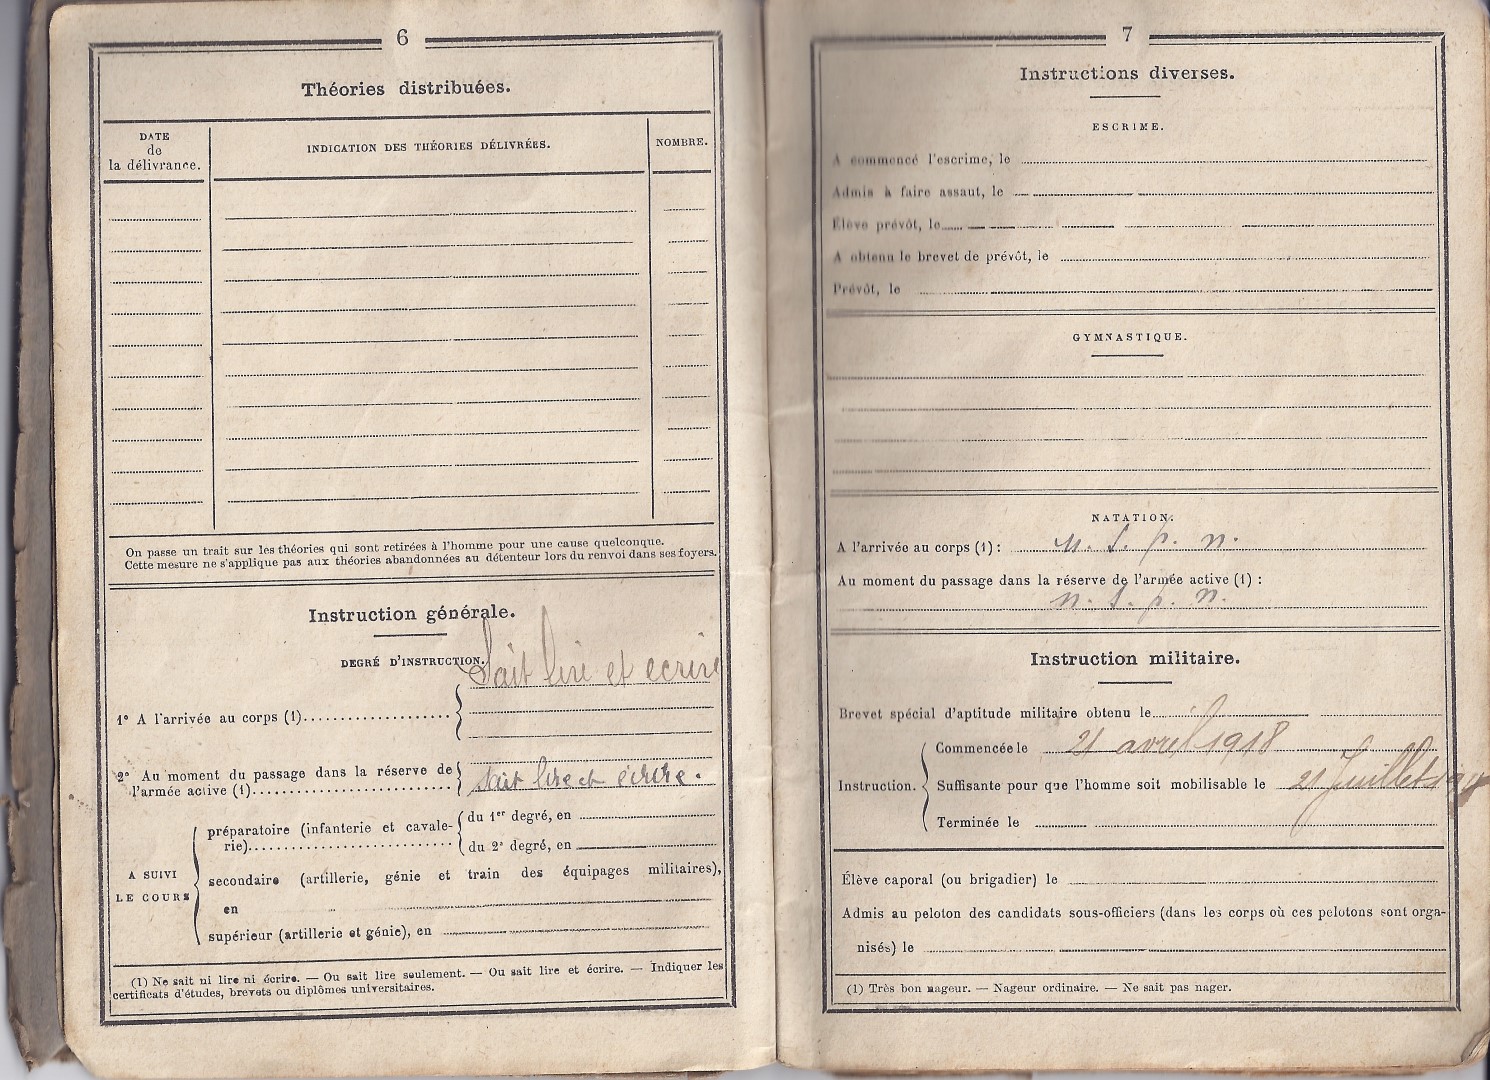 6
Théories distribuées.
DATE
de
la délivrance.
INDICATION DES THÉORIES DÉLIVRÉES.
NOMBRE.
On passe un trait sur les théories qui sont retirées à l'homme pour une cause quelconque.
Cette mesure ne s'applique pas aux théories abandonnées au détenteur lors du renvoi dans ses foyers.
Instruction générale.
DEGRÉ D'INSTRUCTION.
Sait lire et ecrire
1° A l'arrivée au corps (1)
2° Au moment du passage dans la réserve de
l'armée active (1)
sait lire et écrire.
A SUIVI
LE COURS
préparatoire (infanterie et cavale-
rie)
du 1er degré, en
du 2e degré, en
secondaire (artillerie, génie et train des équipages militaires),
en
supérieur (artillerie et génie), en
(1) Ne sait ni lire ni écrire. — Ou sait lire seulement. — Ou sait lire et écrire. — Indiquer les
certificats d'études, brevets ou diplômes universitaires.
7
Instructions diverses.
ESCRIME.
A commencé l'escrime, le
Admis à faire assaut, le
Élève prévôt, le
A obtenu le brevet de prévôt, le
Prévôt, le
GYMNASTIQUE.
NATATION.
A l'arrivée au corps (1) : n. S. p. n.
Au moment du passage dans la réserve de l'armée active (1) :
n. S. p. n.
Instruction militaire.
Brevet spécial d'aptitude militaire obtenu le
Instruction.
Commencée le 21 avril 1918
Suffisante pour que l'homme soit mobilisable le 21 Juillet 1918
Terminée le
Élève caporal (ou brigadier) le
Admis au peloton des candidats sous-officiers (dans les corps où ces pelotons sont orga-
nisés) le
(1) Très bon nageur. — Nageur ordinaire. — Ne sait pas nager.